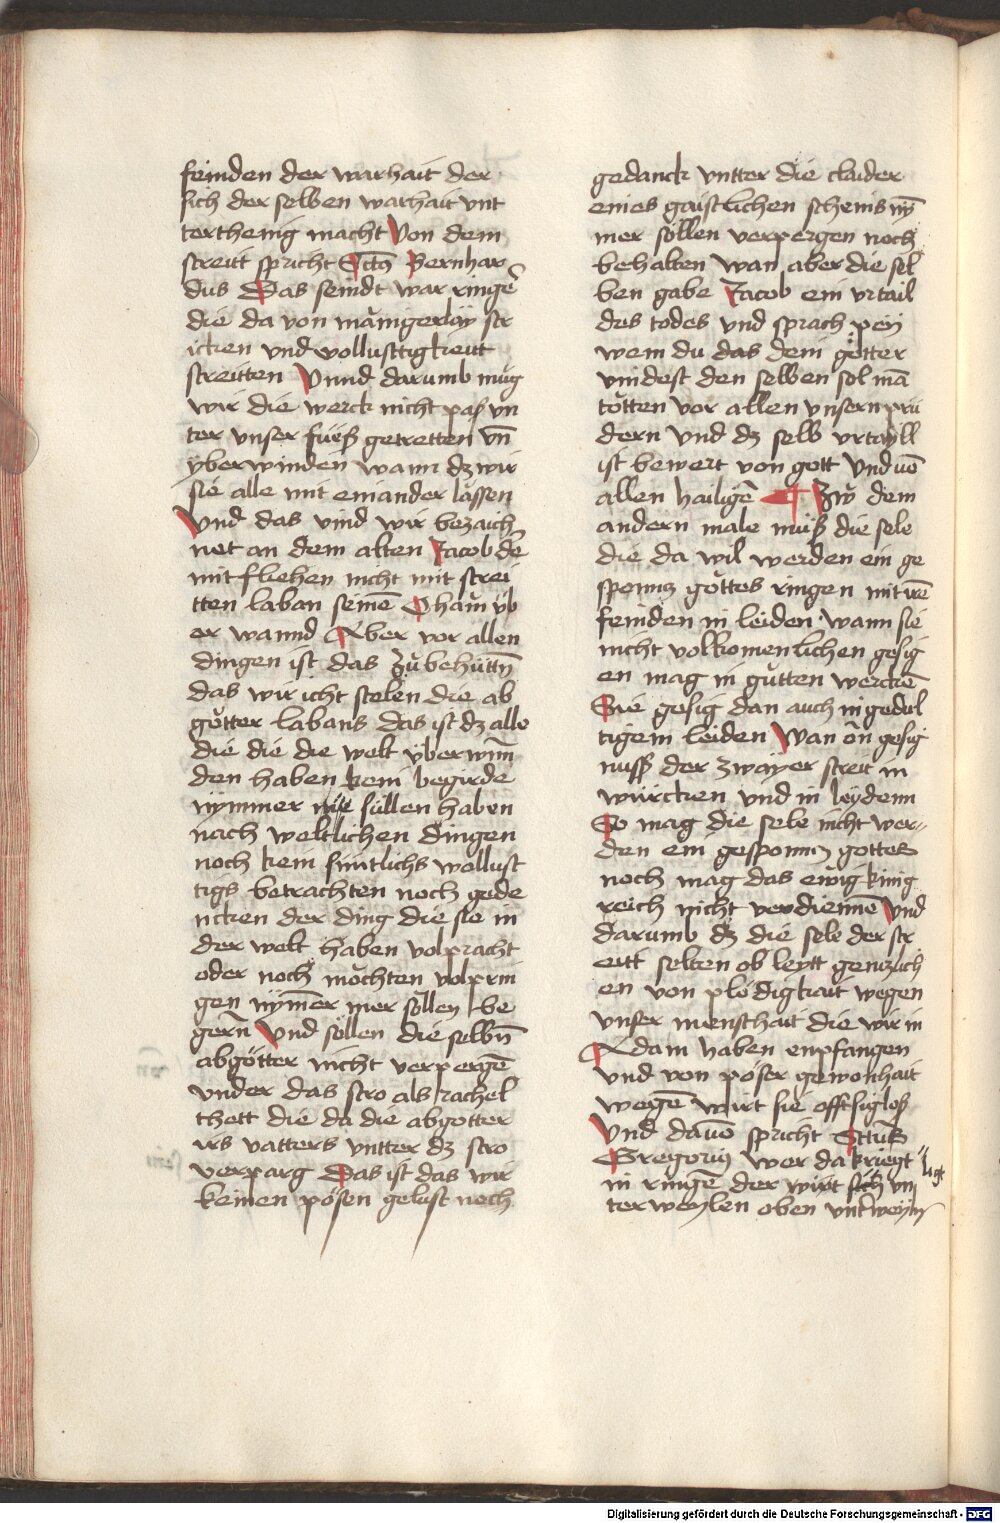 feinden der warhait der
sich der selben warhait vnt
terthenig macht Von dem
streitt spricht Sctus Bernhar
dus Das seindt war ringe͂
die da von mänigerlay str
icken vnd wollusttigkeitt
streitten Vnnd darumb müg
wir die werck nicht paß vn
ter vnser füeß getretten vn̄
yberwinden wann dz wir
sie alle mit einander lassen
Vnd das vind wir bezaich
net an dem alten Jacob de͂
mit fliehen nicht mit strei
tten laban seine͂ Ohaim üb
er wannd Aber vor allen
dingen ist das zu behüttn̄
das wir icht stelen die ab
götter labans das ist dz alle
die die die welt yberwun̄
den haben kein begirde
nymmer nie süllen haben
nach weltlichen dingen
noch kein sinntlichs wollust
tigs betrachten noch gede
ncken der ding die sie in
der welt haben volpracht
oder noch möchten volprin
gen nym̄er mer söllen be
gern̄ Vnd söllen die selbn̄
abgötter nicht verperge͂
vnder das stro als rachel
thett die da die abgotter
irs vatters vntter dz stro
verparg Das ist das wir
keinen pösen gelust noch
gedanck vntter die claider
eines gaistlichen scheins ny͂
mer söllen verpergen noch
behalten wan aber die sel
ben gabe Jacob ein vrtail
des todes vnd sprach pey
wem du das dein götter
vindest den selben sol ma͂
tötten vor allen vnsern prü
dern Vnd dz selb vrtayll
ist bewert von gott Vnd vo͂
allen hailige͂ ¶ Zw dem
andern male müß die sele
die da wil werden ein ge
sponnz gottes ringen mit ire͂
feinden in leiden wann sie
nicht volkomenlichen gesig
en mag in gutten wercke͂
Sie gesig dan auch in gedul
tigem leiden Wan on̄ gesig
nuss der zwayer streit in
würcken vnd in leydenn
So mag die sele nicht wer
den ein gesponnz gottes
noch mag das ewig künig
reich nicht verdienne͂ Vnd
darumb dz die sele der str
eitt selten ob leytt genczlich
en von plödigkait wegen
vnser menschait die wir in
Adam haben enpfangen
vnd von pöser gewonhait
wege͂ wirt sie offt sigloß
Vnd dauo͂ spricht Sttus
Gregoriy wer da kriegt
in ringe͂ der wirt vn
terweylen oben vnterweyln